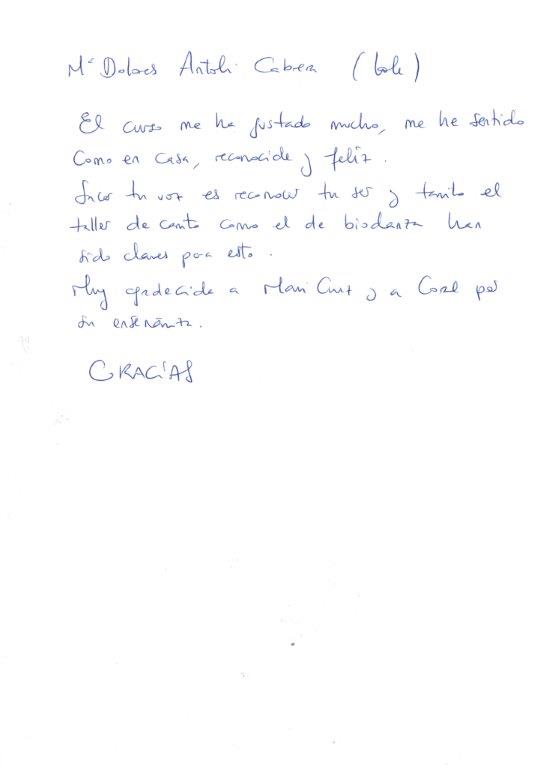 Mª Dolores Antoli Cabrera (Lole)
El curso me ha gustado mucho, me he sentido
como en casa, reconocida y feliz.
Sacar tu voz es reconocer tu ser y tanto el
taller de canto como el de biodanza han
sido claves para esto.
Muy agradecida a Mari Cruz y a Coral por
su enseñanza.
GRACIAS